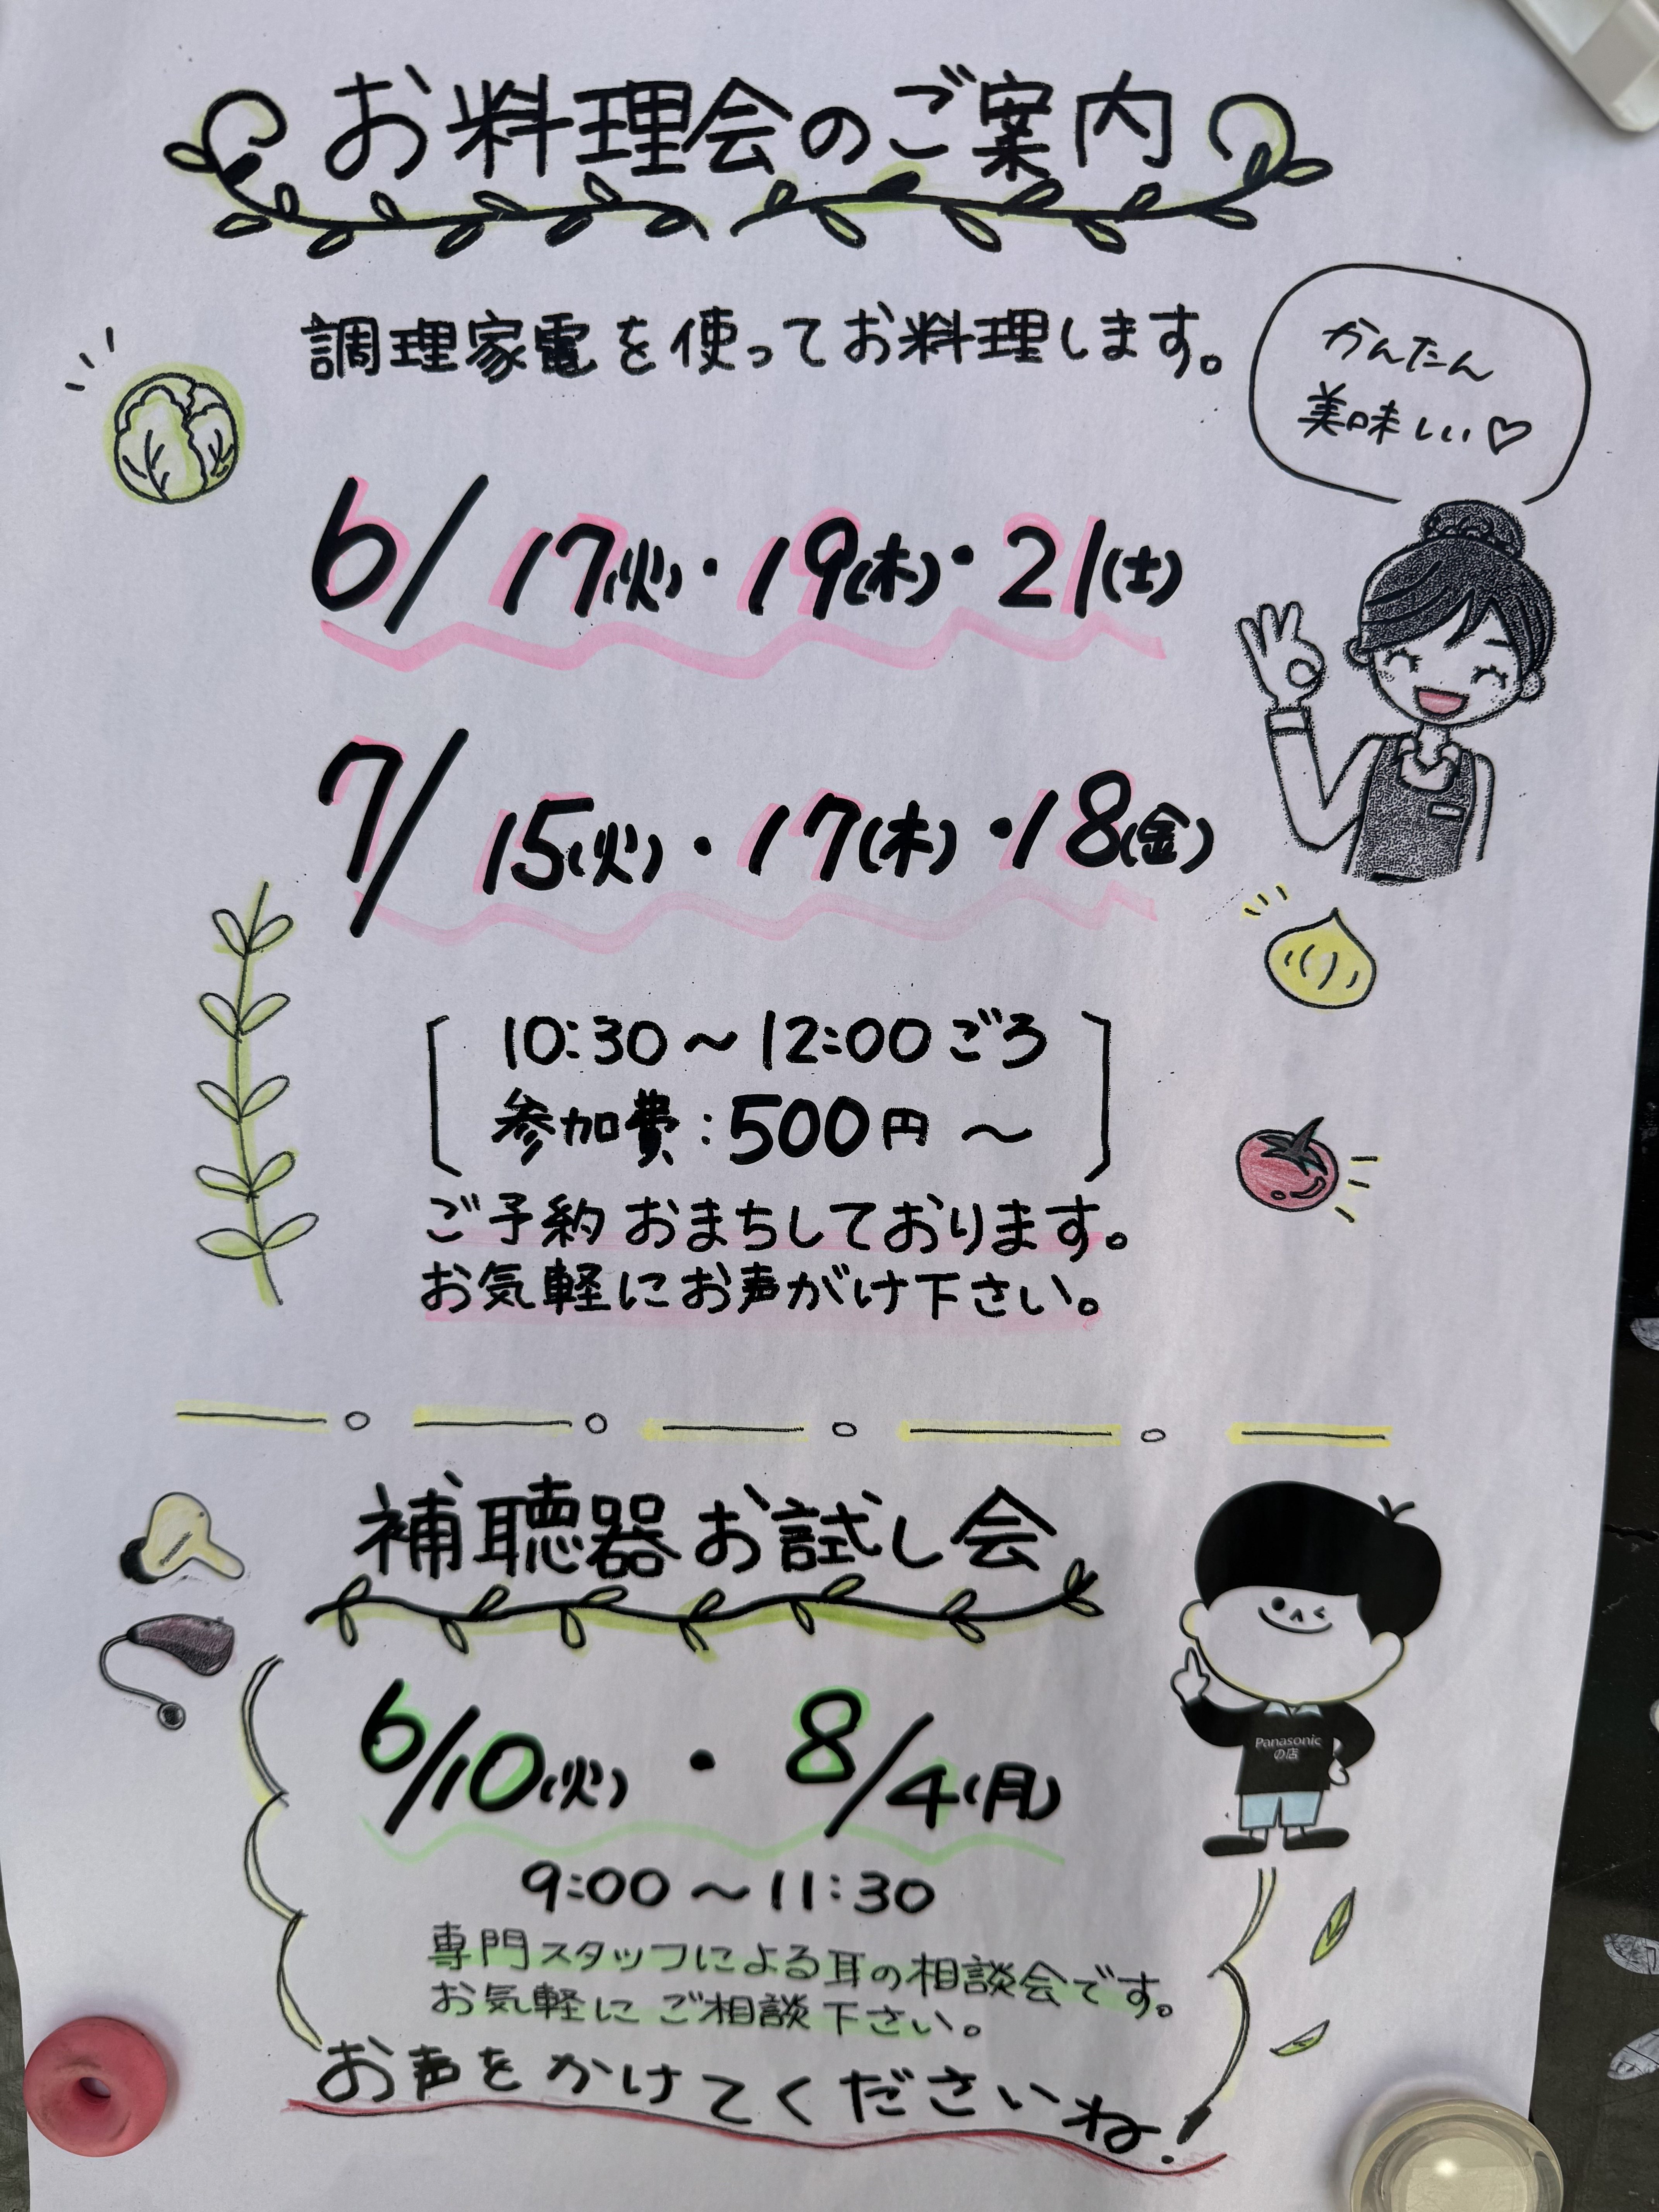 お料理会のご案内
調理家電を使ってお料理します。
かんたん
美味しい♡
6/17(火)・19(木)・21(土)
7/15(火)・17(木)・18(金)
10:30～12:00ごろ
参加費:500円～
ご予約おまちしております。
お気軽にお声がけ下さい。
補聴器お試し会
6/10(火)・8/4(月)
Panasonic
の店
9:00～11:30
専門スタッフによる耳の相談会です。
お気軽にご相談下さい。
お声をかけてくださいね!